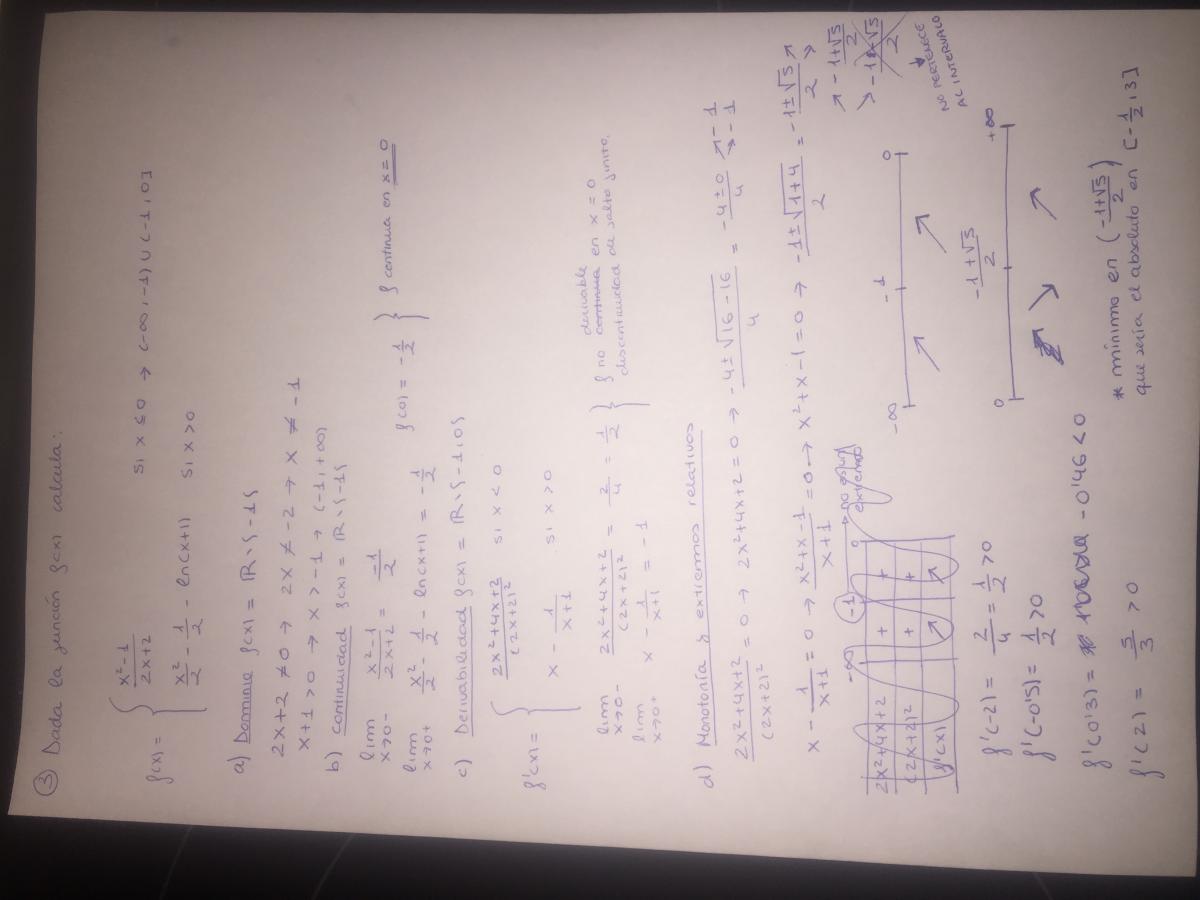 ③ Dada la función f(x) calcula:
f(x) = { x²-1 / 2x+2 si x ≤ 0 → (-∞, -1) ∪ (-1, 0]
x²/2 - 1/2 - ln(x+1) si x > 0
a) Dominio f(x) = ℝ \ {-1}
2x+2 ≠ 0 → 2x ≠ -2 → x ≠ -1
x+1 > 0 → x > -1 → (-1, +∞)
b) Continuidad f(x) = ℝ \ {-1}
lim x→0- x²-1 / 2x+2 = -1/2
lim x→0+ x²/2 - 1/2 - ln(x+1) = -1/2 f(0) = -1/2 } f continua en x = 0
c) Derivabilidad f(x) = ℝ \ {-1, 0}
f'(x) = { 2x²+4x+2 / (2x+2)² si x < 0
x - 1/x+1 si x > 0
lim x→0- 2x²+4x+2 / (2x+2)² = 2/4 = 1/2 } f no derivable en x = 0
lim x→0+ x - 1/x+1 = -1 discontinuidad de salto finito.
d) Monotonía y extremos relativos
2x²+4x+2 / (2x+2)² = 0 → 2x²+4x+2 = 0 → -4±√16-16 / 4 = -4±0 / 4 ↗ -1 ↘ -1
x - 1/x+1 = 0 → x²+x-1 / x+1 = 0 → x²+x-1 = 0 → -1±√1+4 / 2 = -1±√5 / 2 ↗ ↘
↗ -1+√5 / 2
↘ -1-√5 / 2
NO PERTENECE
AL INTERVALO
-∞ (-1) 0 → no es un extremo
2x²+4x+2 + +
(2x+2)² + +
f'(x) ↗ ↗
f'(-2) = 2/4 = 1/2 > 0 -∞ -1 0
f'(-0'5) = 1/2 > 0 ↗ ↗
f'(0'3) = -0'46 < 0 0 -1+√5 / 2 +∞
f'(2) = 5/3 > 0 ↘ ↗
* mínimo en (-1+√5 / 2)
que sería el absoluto en [-1/2, 3]